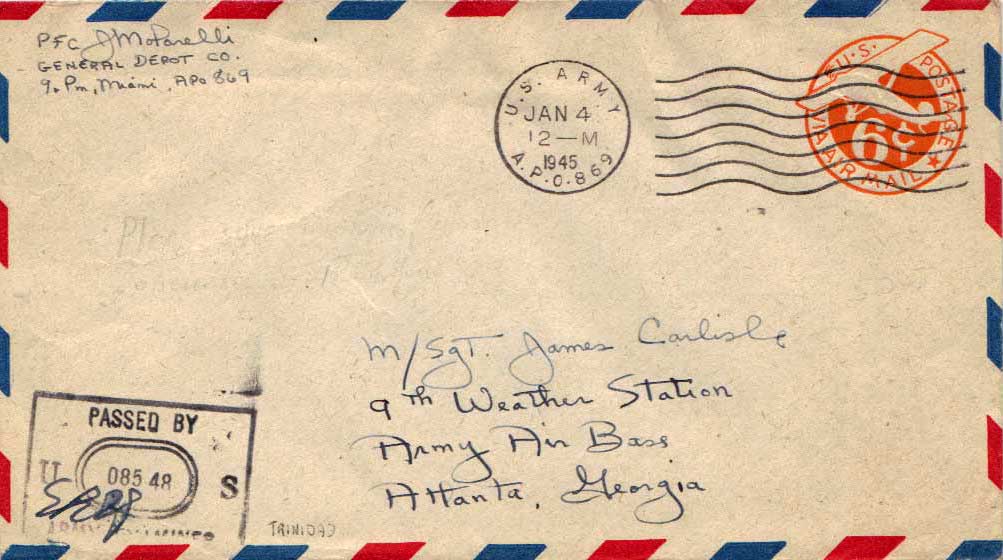 PFC J Motarelli
GENERAL DEPOT CO.
9. Pm, Miami, APO 869
U.S. ARMY
JAN 4
12—M
1945
A.P.O. 869
U.S. POSTAGE
6¢
VIA AIR MAIL
M/Sgt. James Carlisle
9th Weather Station
Army Air Base
Atlanta, Georgia
PASSED BY
U 08548 S
TRINIDAD